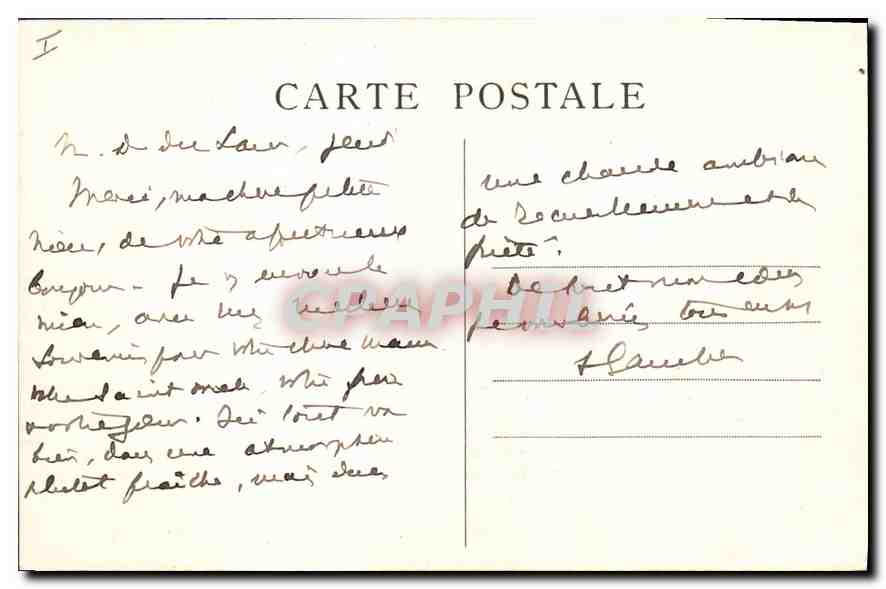 I
CARTE POSTALE
N. D. du Laus, jeudi
Merci, ma chère petite
nièce, de votre affectueux
bonjour - Je vous envoie le
mien, avec mes meilleurs
souvenirs pour votre chère maman
votre père
Ici tout va
bien, dans une atmosphère
plutôt fraîche, mais dans
une chaude ambiance
de recueillement et de
piété.
De tout mon cœur
je vous bénis tous
CPAPHIL